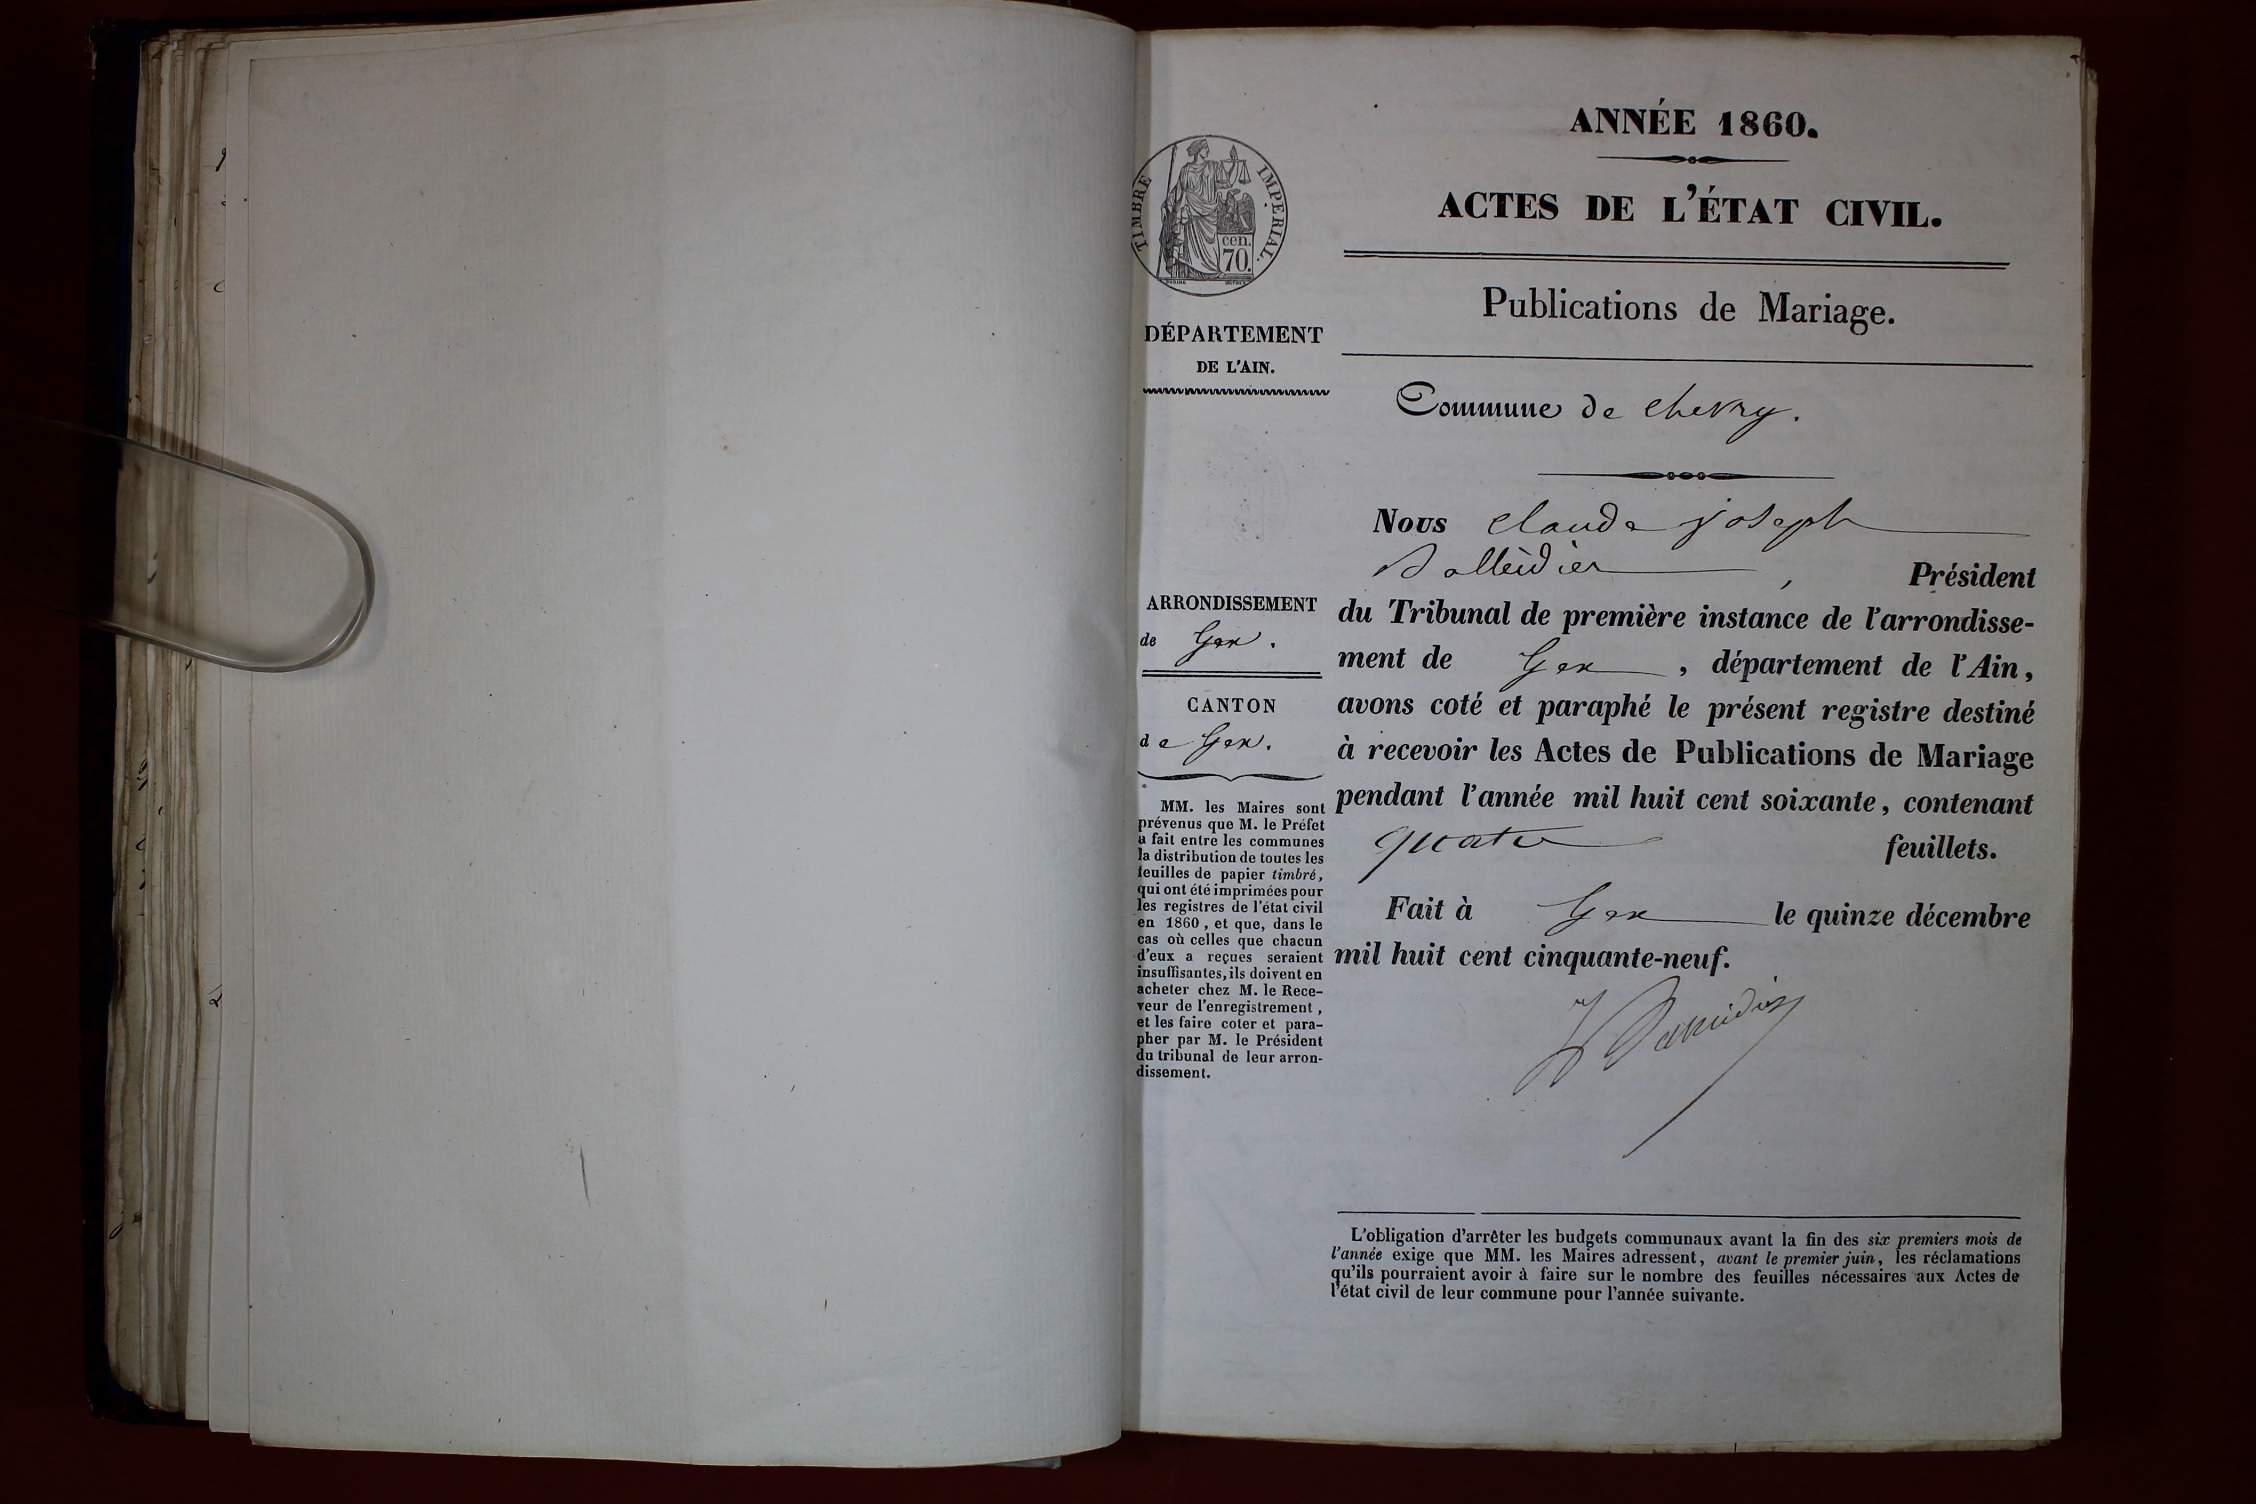 ANNÉE 1860.
ACTES DE L'ÉTAT CIVIL.
Publications de Mariage.
TIMBRE IMPERIAL.
cen.
70.
DÉPARTEMENT
DE L'AIN.
ARRONDISSEMENT
de Gex.
CANTON
de Gex.
MM. les Maires sont
prévenus que M. le Préfet
a fait entre les communes
la distribution de toutes les
feuilles de papier timbré,
qui ont été imprimées pour
les registres de l'état civil
en 1860, et que, dans le
cas où celles que chacun
d'eux a reçues seraient
insuffisantes, ils doivent en
acheter chez M. le Rece-
veur de l'enregistrement,
et les faire coter et para-
pher par M. le Président
du tribunal de leur arron-
dissement.
Commune de Chevry.
Nous Claude Joseph
, Président
du Tribunal de première instance de l'arrondisse-
ment de Gex, département de l'Ain,
avons coté et paraphé le présent registre destiné
à recevoir les Actes de Publications de Mariage
pendant l'année mil huit cent soixante, contenant
quatre feuillets.
Fait à Gex le quinze décembre
mil huit cent cinquante-neuf.
L'obligation d'arrêter les budgets communaux avant la fin des six premiers mois de
l'année exige que MM. les Maires adressent, avant le premier juin, les réclamations
qu'ils pourraient avoir à faire sur le nombre des feuilles nécessaires aux Actes de
l'état civil de leur commune pour l'année suivante.